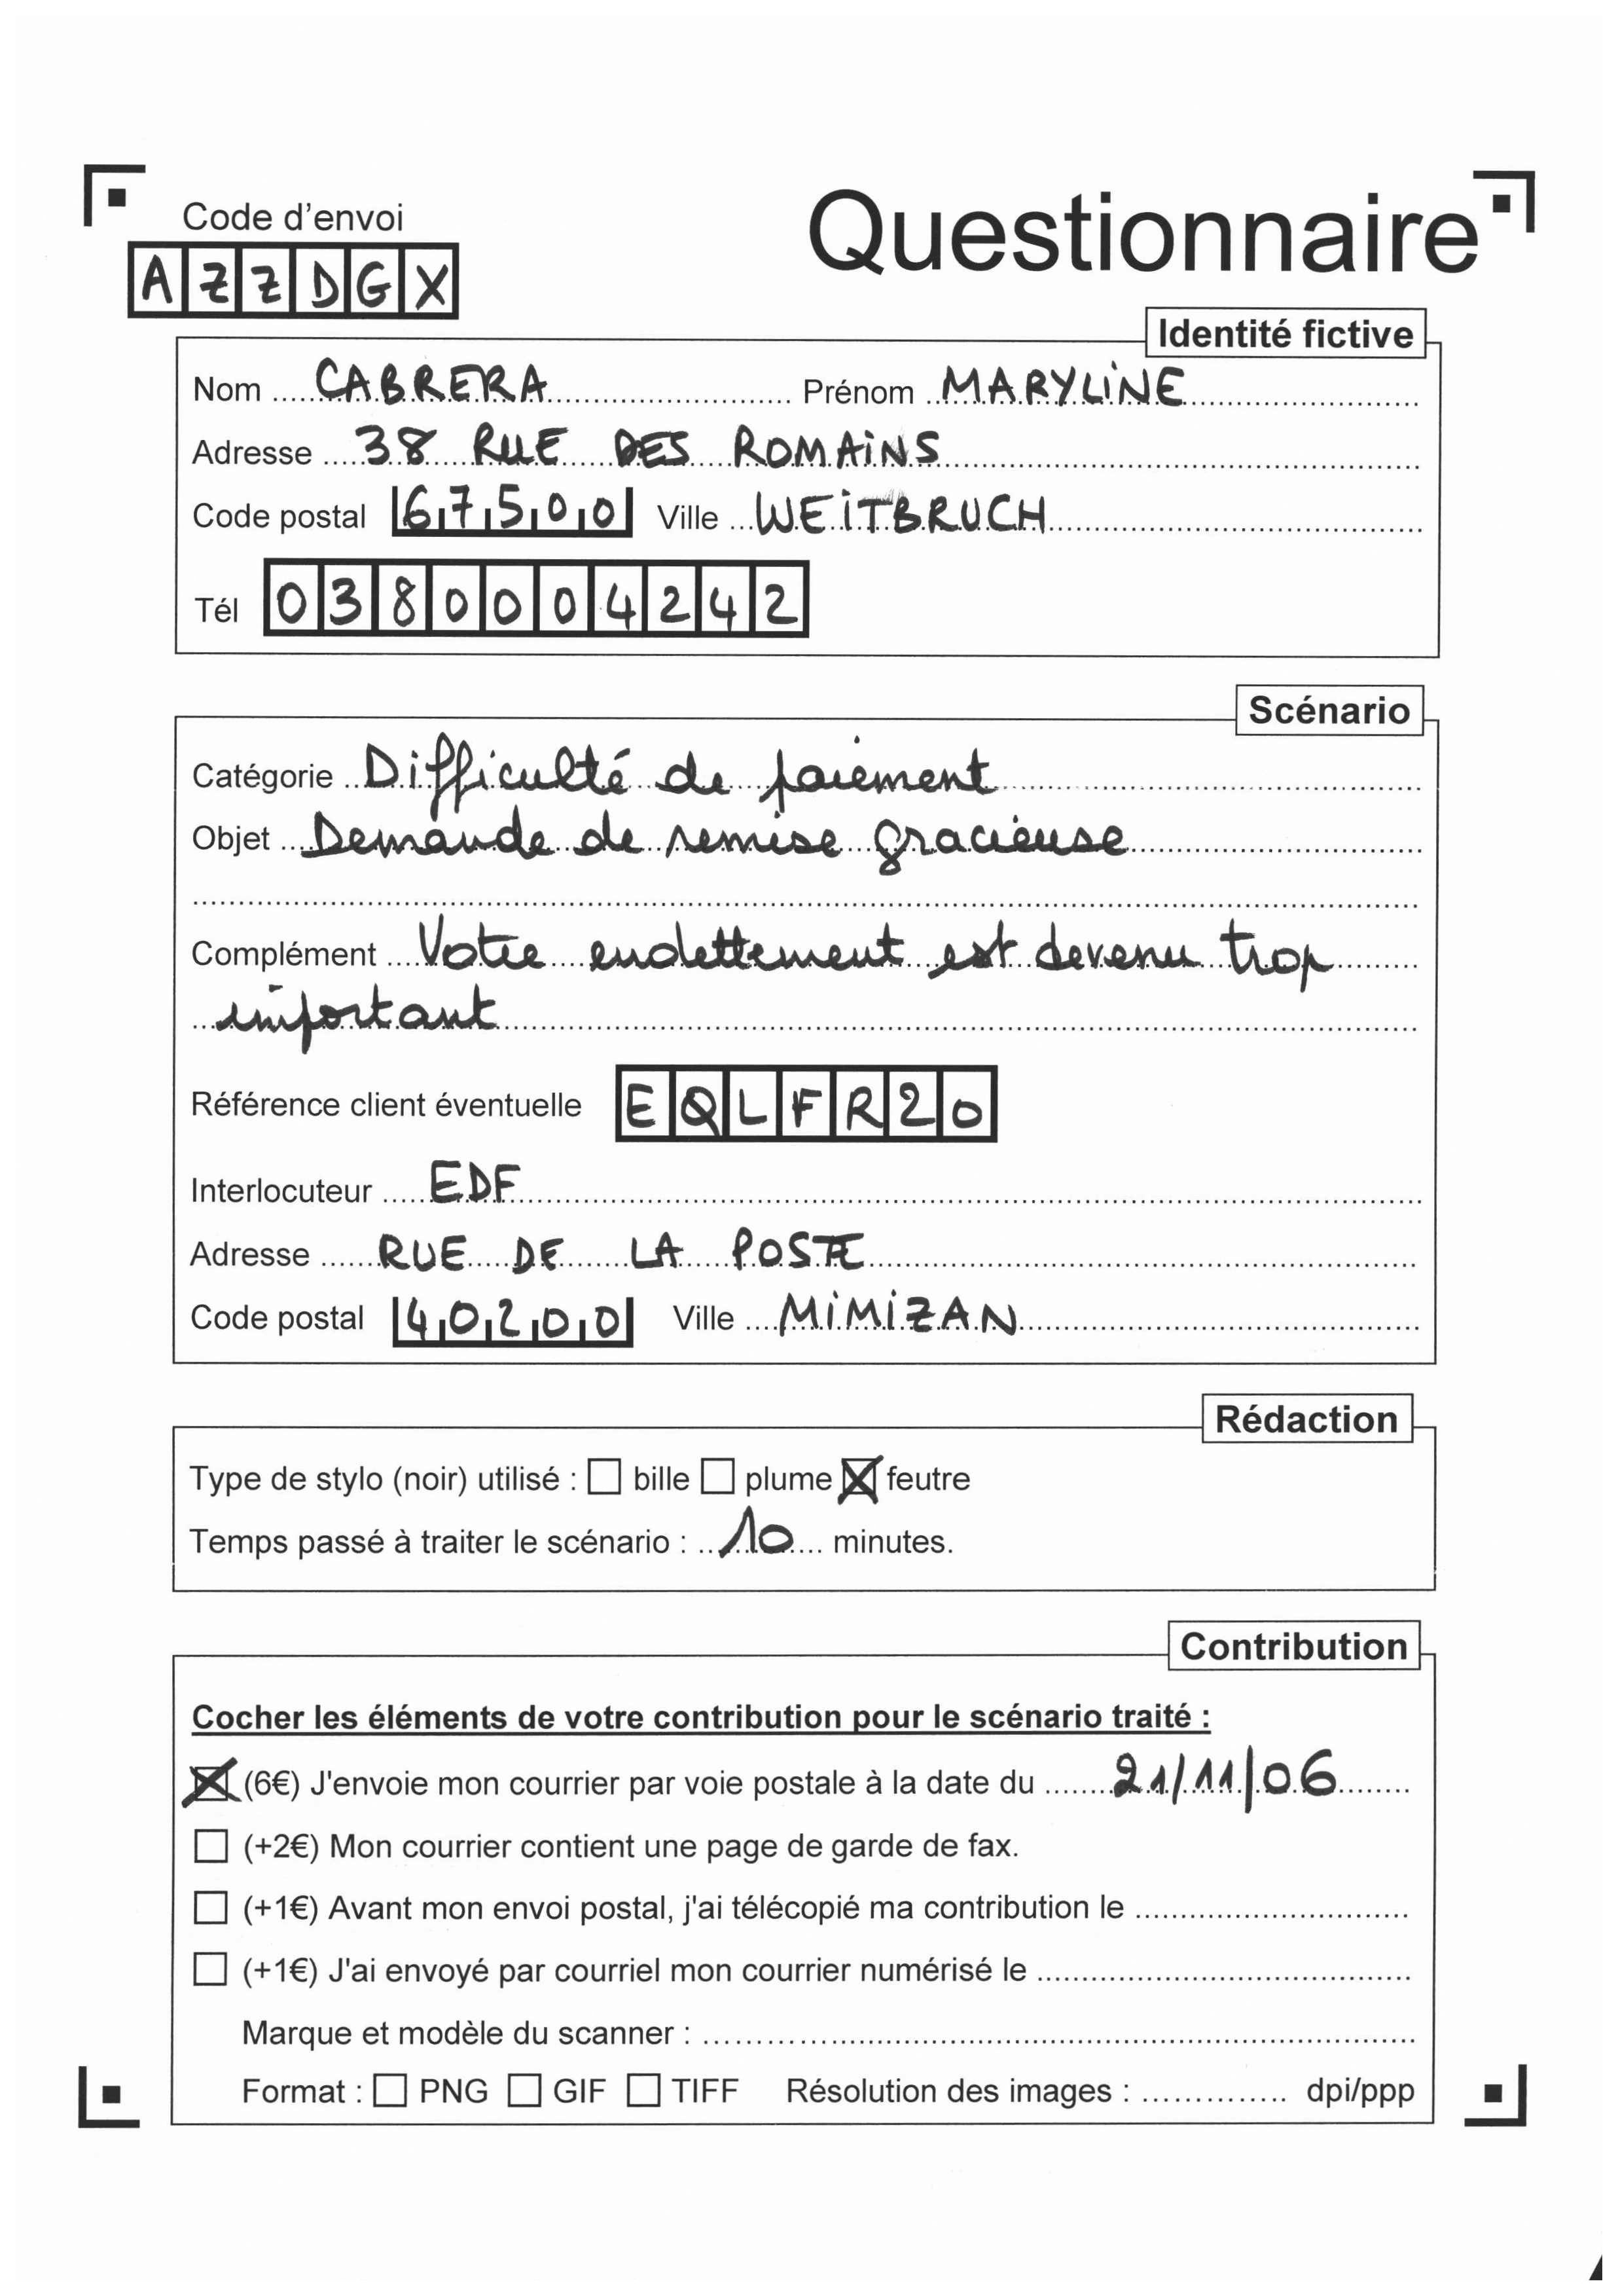 Code d'envoi
Questionnaire
AZZDGX
Identité fictive
Nom CABRERA Prénom MARYLINE
Adresse 38 RUE DES ROMAINS
Code postal 67500 Ville WEITBRUCH
Tél 0380004242
Scénario
Catégorie Difficulté de paiement
Objet Demande de remise gracieuse
Complément Votre endettement est devenu trop
important
Référence client éventuelle EQLFR20
Interlocuteur EDF
Adresse RUE DE LA POSTE
Code postal 40200 Ville MIMIZAN
Rédaction
Type de stylo (noir) utilisé : ☐ bille ☐ plume ☒ feutre
Temps passé à traiter le scénario : 10 minutes.
Contribution
Cocher les éléments de votre contribution pour le scénario traité :
☒ (6€) J'envoie mon courrier par voie postale à la date du 21/11/06
☐ (+2€) Mon courrier contient une page de garde de fax.
☐ (+1€) Avant mon envoi postal, j'ai télécopié ma contribution le
☐ (+1€) J'ai envoyé par courriel mon courrier numérisé le
Marque et modèle du scanner :
Format : ☐ PNG ☐ GIF ☐ TIFF Résolution des images : dpi/ppp